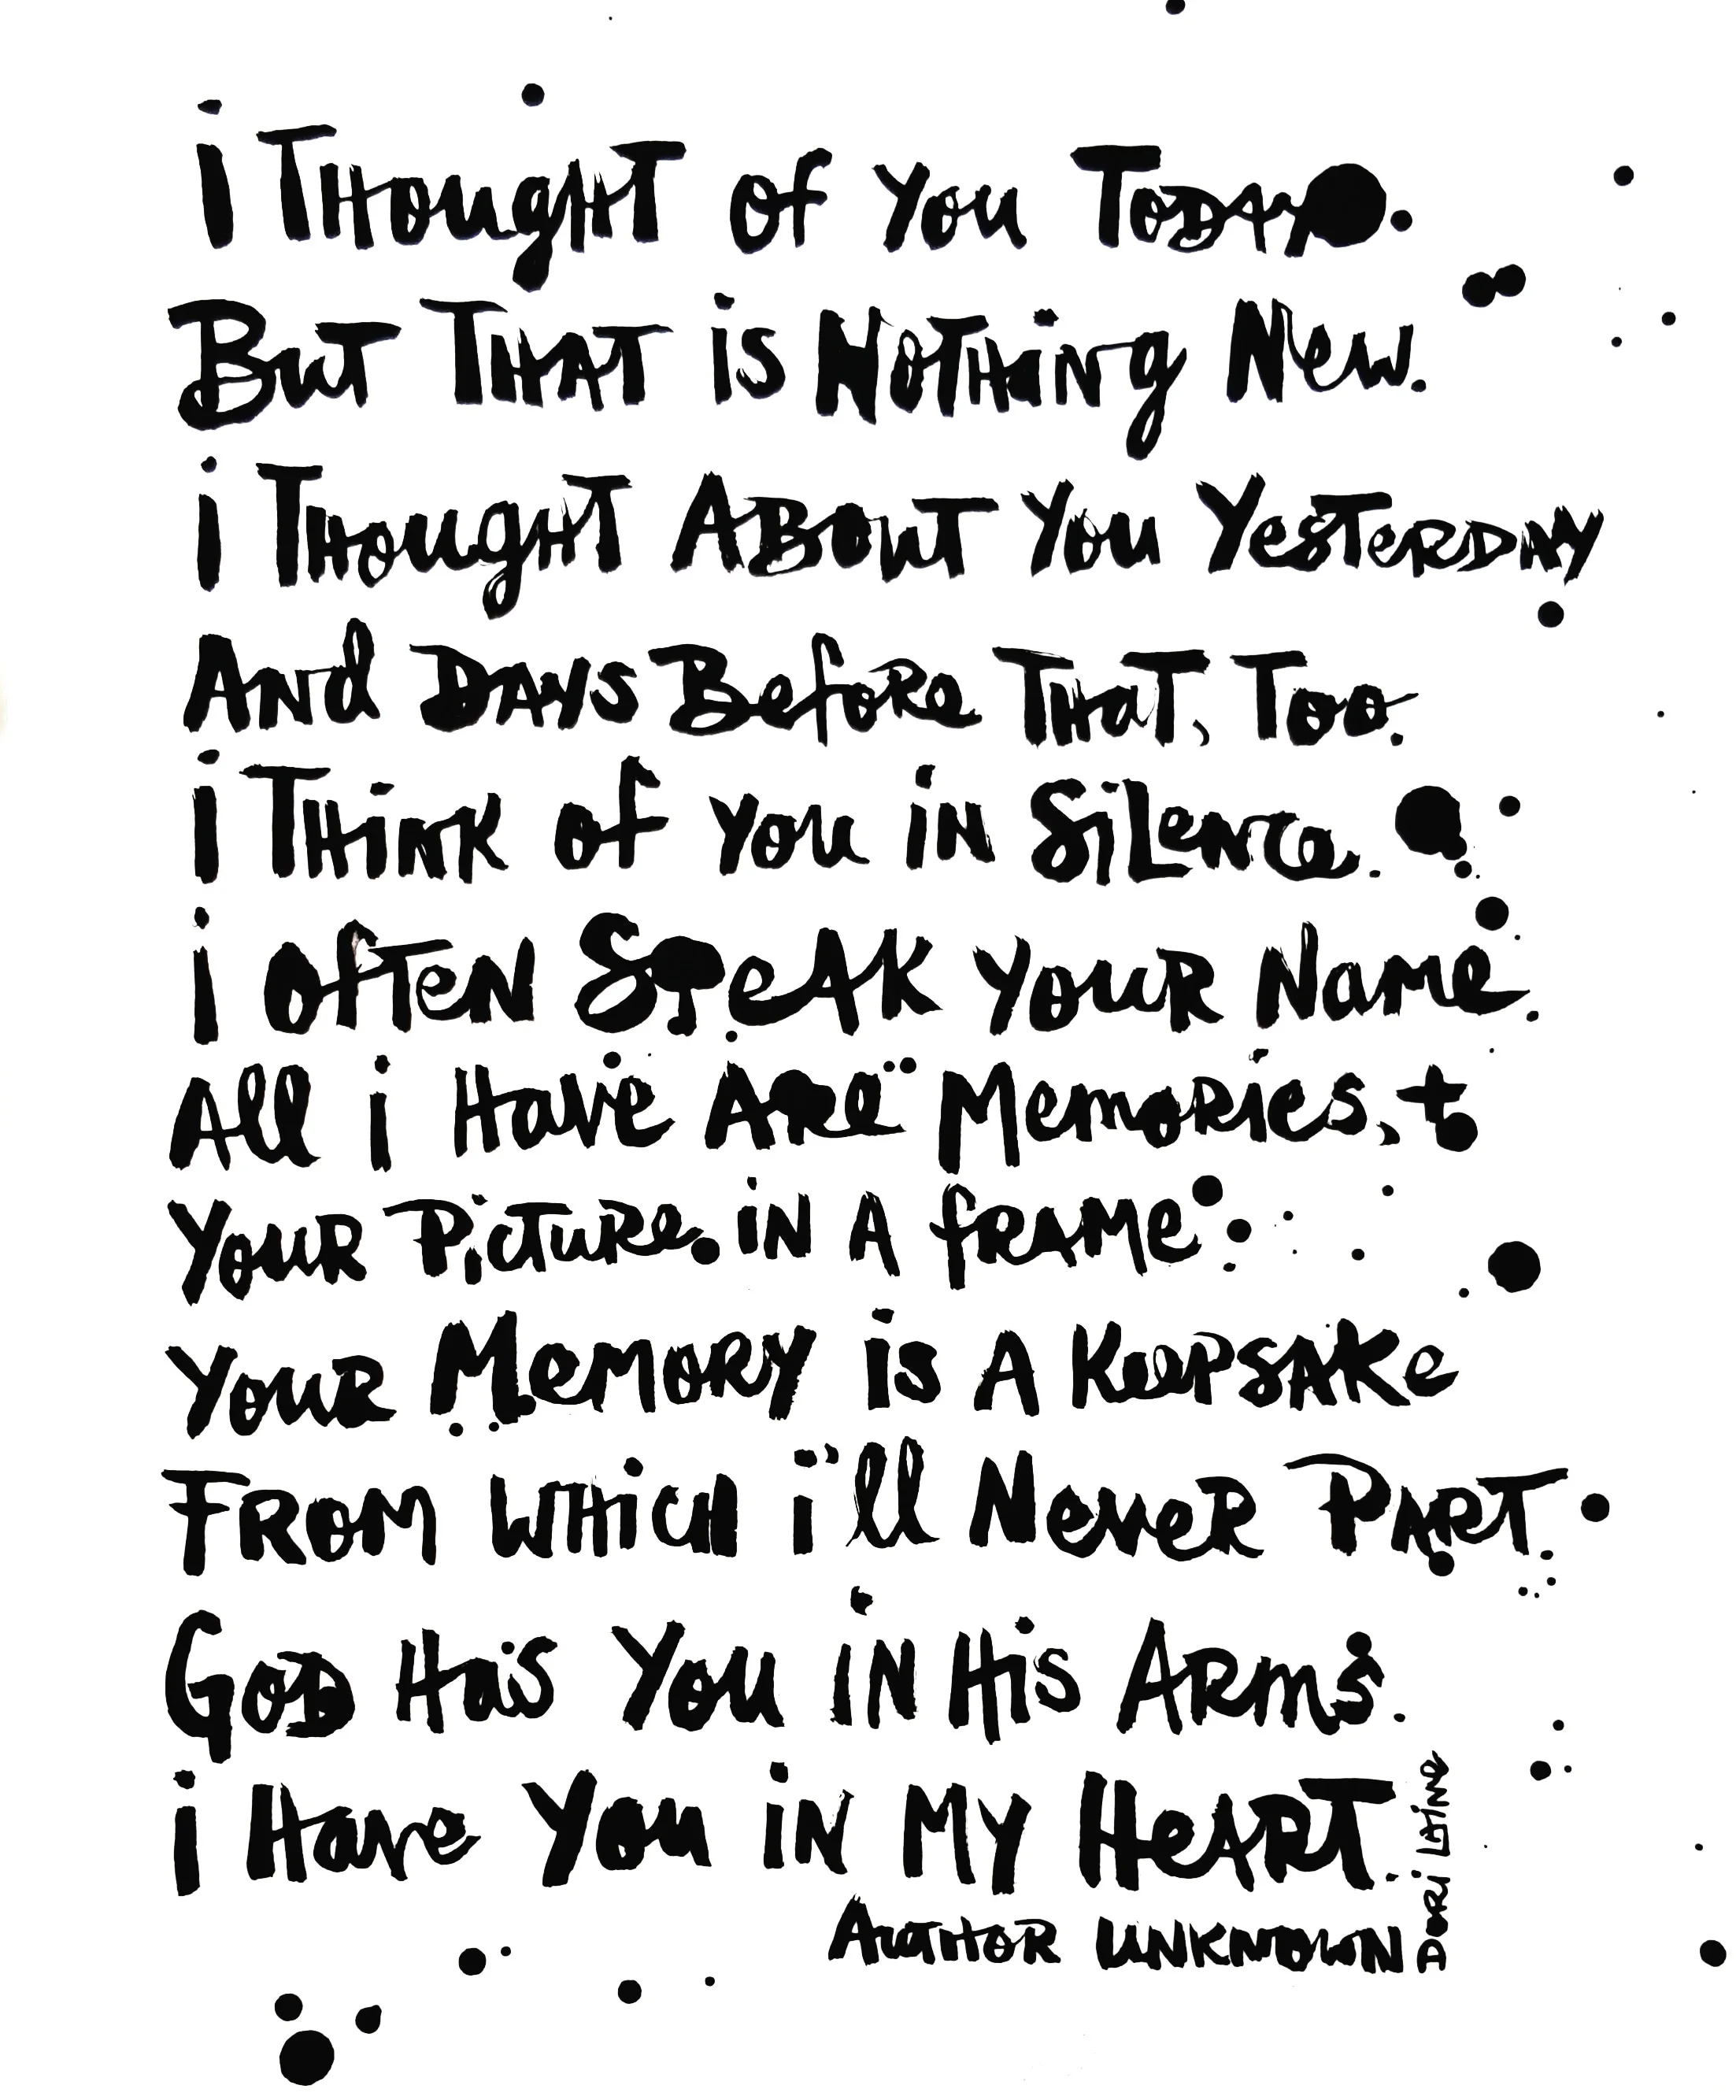 i THougHT of You TODAY.
BuT THAT is NoTHiNg New.
i THougHT ABOuT You YesTeRDAY
ANd DAYS BefoRe THaT, Too.
i THiNK of you iN SiLeNce.
i OfTeN SpeAK YouR Name.
All i Have ARe MemoRies, +
YouR PicTuRe iN A fRAMe.
YouR MeMoRY is A KeepsAKe
FROM WHicH i'll NeveR PART.
GoD Has You iN His ARms.
i Have You iN MY HeART.
AuTHOR UNKNOWN